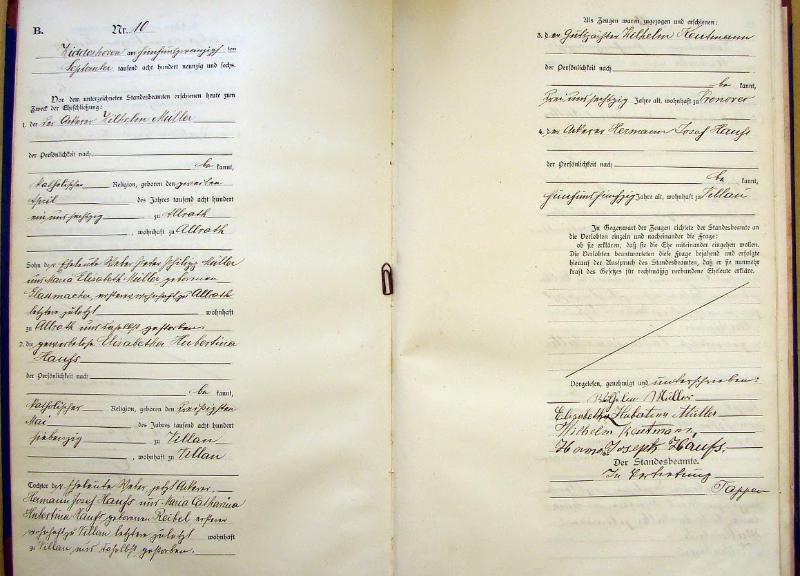 B.
Nr. 10
Hiddeshoven am fünfundzwanzigsten
September tausend acht hundert neunzig und sechs.
Vor dem unterzeichneten Standesbeamten erschienen heute zum
Zweck der Eheschließung:
1. der Ackerer Wilhelm Müller
der Persönlichkeit nach
be kannt,
katholischer Religion, geboren den zweiten
April des Jahres tausend acht hundert
ein und sechzig zu Allrath
, wohnhaft zu Allrath
Sohn der Eheleute Peter Philipp Müller
und Maria Elisabeth Müller geborenen
ersterer wohnhaft zu Allrath
letztere zuletzt wohnhaft
zu Allrath und daselbst gestorben.
2. die gewerbelose Elisabetha Hubertina
Haufs
der Persönlichkeit nach
be kannt,
katholischer Religion, geboren den dreißigsten
Mai des Jahres tausend acht hundert
siebenzig zu Tillau
, wohnhaft zu Tillau
Tochter der Eheleute jetzt Ackerer
Hermann Josef Haufs und Maria Catharina
Hubertina Haufs geborenen Reibel ersterer
wohnhaft zu Tillau letztere zuletzt wohnhaft
zu Tillau und daselbst gestorben.
Als Zeugen waren zugezogen und erschienen:
3. der Gutspächter Wilhelm Keutmann
der Persönlichkeit nach
be kannt,
drei und sechzig Jahre alt, wohnhaft zu
4. der Ackerer Hermann Josef Haufs
der Persönlichkeit nach
be kannt,
fünf und fünfzig Jahre alt, wohnhaft zu Tillau
In Gegenwart der Zeugen richtete der Standesbeamte an
die Verlobten einzeln und nacheinander die Frage:
ob sie erklären, daß sie die Ehe miteinander eingehen wollen.
Die Verlobten beantworteten diese Frage bejahend und erfolgte
hierauf der Ausspruch des Standesbeamten, daß er sie nunmehr
kraft des Gesetzes für rechtmäßig verbundene Eheleute erkläre.
Vorgelesen, genehmigt und unterschrieben:
Wilhelm Müller
Elisabetha Hubertina Müller
Wilhelm Keutmann,
Herm. Joseph Haufs.
Der Standesbeamte.
In Vertretung
Tappen